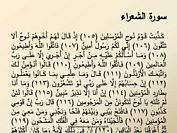 سورة الشعراء
كَذَّبَتْ قَوْمُ نُوحٍ الْمُرْسَلِينَ (١٠٥) إِذْ قَالَ لَهُمْ أَخُوهُمْ نُوحٌ أَلَا
تَتَّقُونَ (١٠٦) إِنِّي لَكُمْ رَسُولٌ أَمِينٌ (١٠٧) فَاتَّقُوا اللَّهَ وَأَطِيعُونِ
(١٠٨) وَمَا أَسْأَلُكُمْ عَلَيْهِ مِنْ أَجْرٍ إِنْ أَجْرِيَ إِلَّا عَلَى رَبِّ
الْعَالَمِينَ (١٠٩) فَاتَّقُوا اللَّهَ وَأَطِيعُونِ (١١٠) قَالُوا أَنُؤْمِنُ لَكَ
وَاتَّبَعَكَ الْأَرْذَلُونَ (١١١) قَالَ وَمَا عِلْمِي بِمَا كَانُوا يَعْمَلُونَ
(١١٢) إِنْ حِسَابُهُمْ إِلَّا عَلَى رَبِّي لَوْ تَشْعُرُونَ (١١٣) وَمَا أَنَا
بِطَارِدِ الْمُؤْمِنِينَ (١١٤) إِنْ أَنَا إِلَّا نَذِيرٌ مُبِينٌ (١١٥) قَالُوا لَئِنْ لَمْ
تَنْتَهِ يَا نُوحُ لَتَكُونَنَّ مِنَ الْمَرْجُومِينَ (١١٦) قَالَ رَبِّ إِنَّ قَوْمِي
كَذَّبُونِ (١١٧) فَافْتَحْ بَيْنِي وَبَيْنَهُمْ فَتْحًا وَنَجِّنِي وَمَنْ مَعِيَ